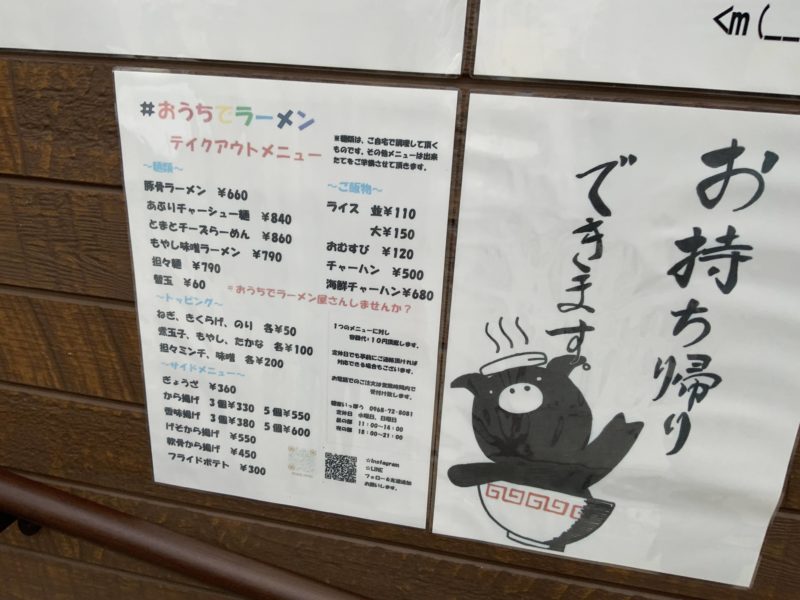 <m(__
#おうちでラーメン
テイクアウトメニュー
※麺類は、ご自宅で調理して頂く
ものです。その他メニューは出来
たてをご準備させて頂きます。
～麺類～
豚骨ラーメン ￥660
あぶりチャーシュー麺 ￥840
とまとチーズらーめん ￥860
もやし味噌ラーメン ￥790
担々麺 ￥790
替玉 ￥60
～ご飯物～
ライス 並￥110
大￥150
おむすび ￥120
チャーハン ￥500
海鮮チャーハン￥680
＊おうちでラーメン屋さんしませんか？
～トッピング～
ねぎ、きくらげ、のり 各￥50
煮玉子、もやし、たかな 各￥100
担々ミンチ、味噌 各￥200
～サイドメニュー～
ぎょうざ ￥360
から揚げ 3個￥330 5個￥550
香味揚げ 3個￥380 5個￥600
げそから揚げ ￥550
軟骨から揚げ ￥450
フライドポテト ￥300
1つのメニューに対し
容器代：10円頂戴します。
定休日でも事前にご連絡頂ければ
対応できる場合もございます。
お電話でのご注文は営業時間内で
受付け致します。
麺屋いっぽう 0968-72-8081
定休日 水曜日、日曜日
昼の部 11：00～14：00
夜の部 18：00～21：00
☆Instagram
☆LINE
フォロー＆友達追加
お願いします。
お持ち帰り
できます。